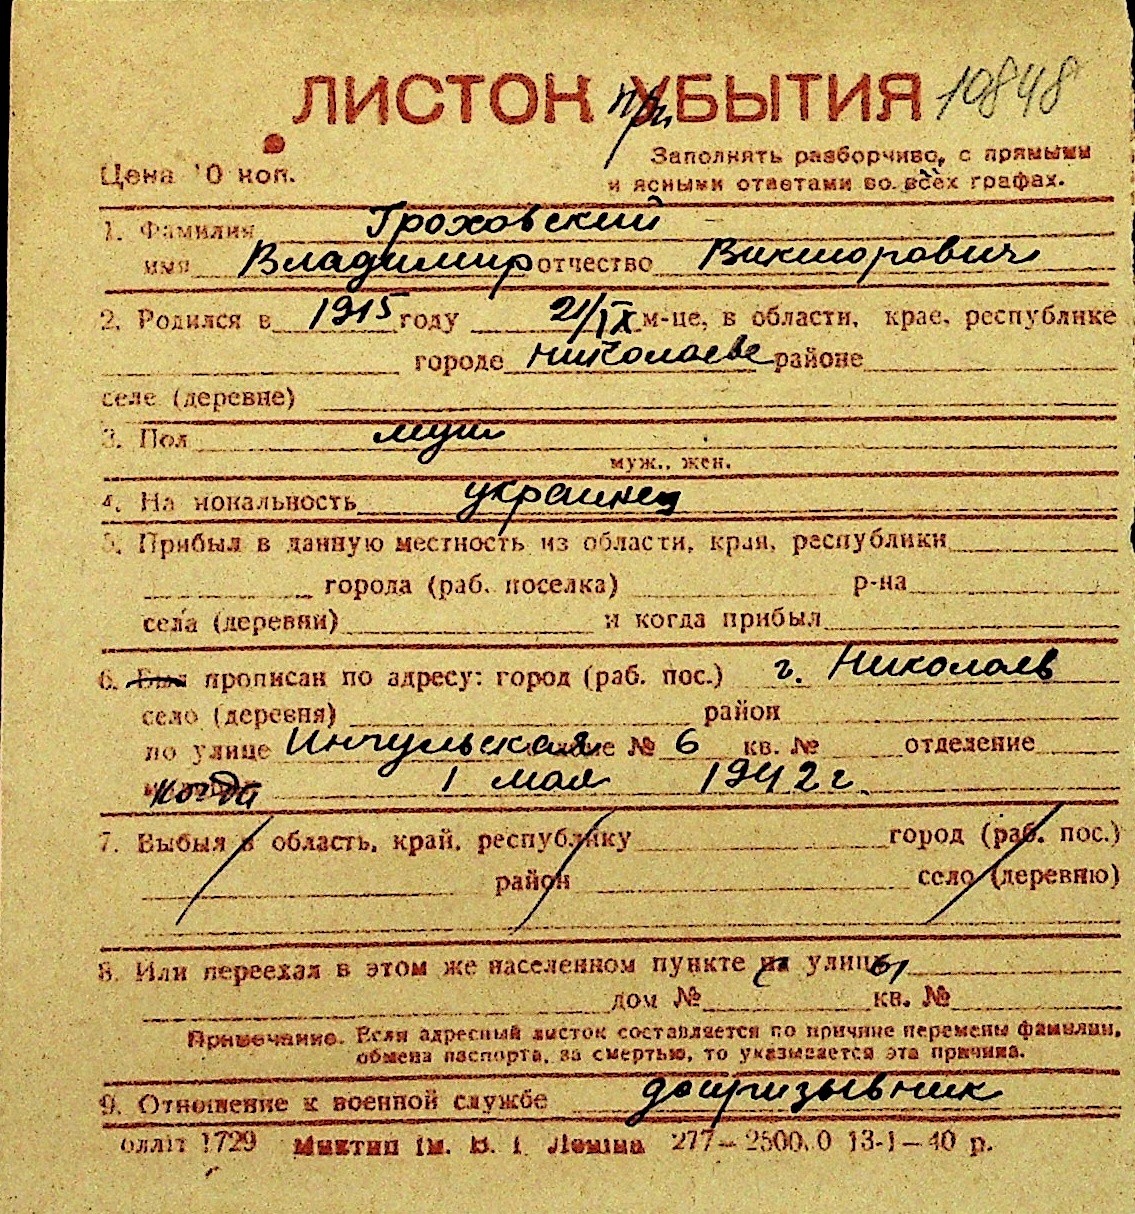 ЛИСТОК УБЫТИЯ 10848
при
Цена 10 коп.
Заполнять разборчиво, с прямыми
и ясными ответами во всех графах.
1. Фамилия Гроховский
имя Владимир отчество Викторович
2. Родился в 1915 году 21/IX м-це, в области, крае, республике
городе Николаеве районе
селе (деревне)
3. Пол муж
муж., жен.
4. Национальность украинец
5. Прибыл в данную местность из области, края, республики
города (раб. поселка) р-на
села (деревни) и когда прибыл
6. Был прописан по адресу: город (раб. пос.) г. Николаев
село (деревня) район
по улице Ингульская № 6 кв. № отделение
когда 1 мая 1942 г.
7. Выбыл в область, край, республику город (раб. пос.)
район село (деревню)
8. Или переехал в этом же населенном пункте с улицы
дом № кв. №
Примечание. Если адресный листок составляется по причине перемены фамилии,
обмена паспорта, за смертью, то указывается эта причина.
9. Отношение к военной службе допризывник
оллит 1729 Миктип Ім. В. І. Леніна 277—2500.0 13-1—40 р.